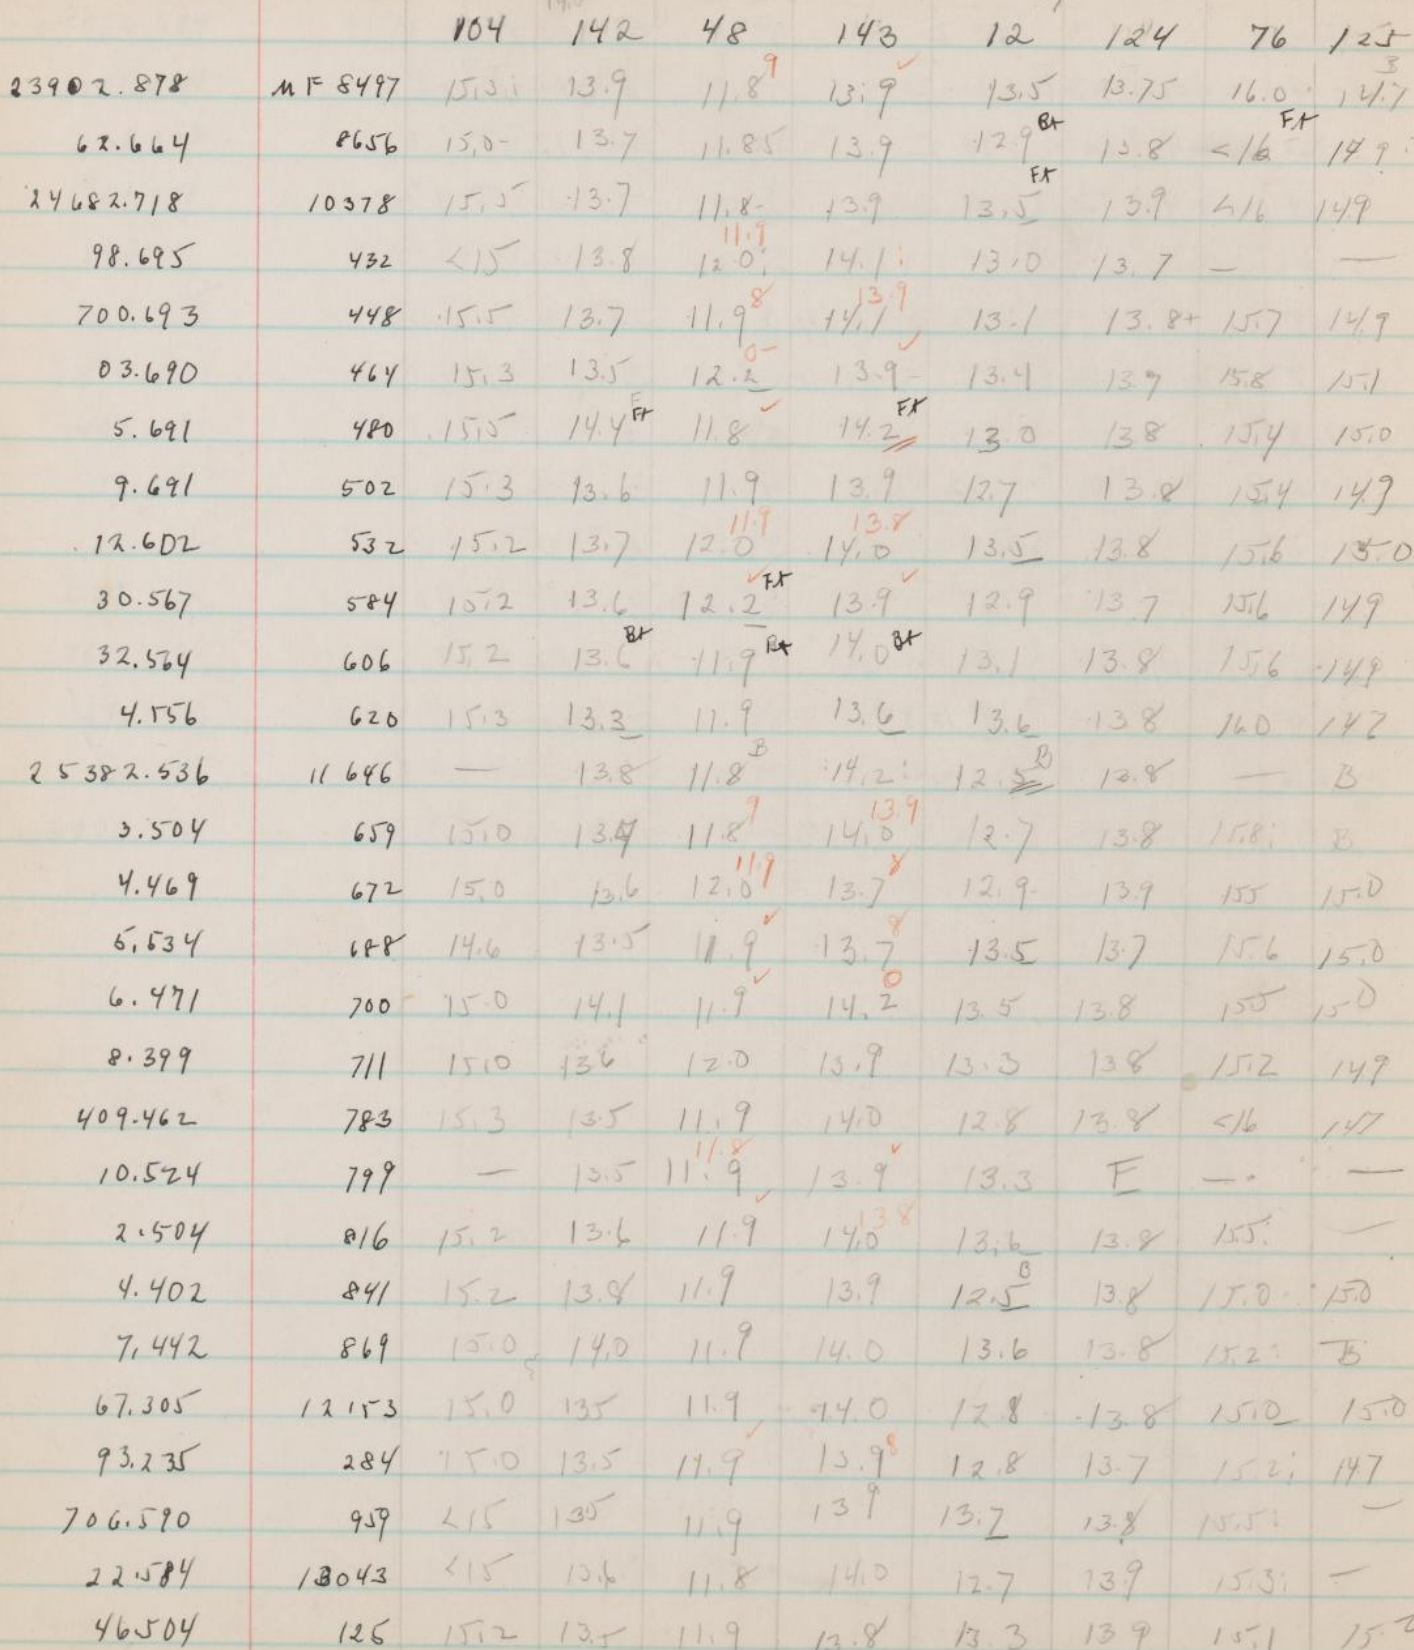 104 142 48 143 12 124 76 125
23902.878 MF 8497 15.3: 13.9 11.8 9 13.9 ✓ 13.5 13.75 16.0 14.7
62.664 8656 15.0- 13.7 11.85 13.9 12.9 Bt 13.8 <16 Ft 14.9:
24682.718 10378 15.5 13.7 11.8- 13.9 13.5 Ft 13.9 <16 14.9
98.695 432 <15 13.8 12.0: 11.9 14.1: 13.0 13.7 — —
700.693 448 15.5 13.7 11.9 8 14.1 13.9 13.1 13.8+ 15.7 14.9
03.690 464 15.3 13.5 12.2 0- 13.9- ✓ 13.4 13.9 15.8 15.1
5.691 480 15.5 14.4 Ft 11.8 ✓ 14.2 Ft 13.0 13.8 15.4 15.0
9.691 502 15.3 13.6 11.9 13.9 12.7 13.8 15.4 14.9
12.602 532 15.2 13.7 12.0 11.9 14.0 13.8 13.5 13.8 15.6 15.0
30.567 584 15.2 13.6 12.2 ✓ Ft 13.9 ✓ 12.9 13.7 15.6 14.9
32.564 606 15.2 13.6 Bt 11.9 Bt 14.0 Bt 13.1 13.8 15.6 14.9
4.556 620 15.3 13.3 11.9 13.6 13.6 13.8 16.0 14.7
25382.536 11646 — 13.8 11.8 B 14.2: 12.5 B 13.8 — B
3.504 659 15.0 13.7 11.8 9 14.0 13.9 12.7 13.8 15.8: B
4.469 672 15.0 13.6 12.0 11.9 13.7 8 12.9- 13.9 15.5 15.0
5.534 688 14.6 13.5 11.9 ✓ 13.7 8 13.5 13.7 15.6 15.0
6.471 700 15.0 14.1 11.9 ✓ 14.2 0 13.5 13.8 15.5 15.0
8.399 711 15.0 13.6 12.0 13.9 13.3 13.8 15.2 14.9
409.462 783 15.3 13.5 11.9 14.0 12.8 13.8 <16 14.7
10.524 799 — 13.5 11.9 11.8 13.9 ✓ 13.3 F — —
2.504 816 15.2 13.6 11.9 ✓ 14.0 13.8 13.6 13.8 15.5: —
4.402 841 15.2 13.8 11.9 13.9 12.5 B 13.8 15.0 15.0
7.442 869 15.0 14.0 11.9 14.0 13.6 13.8 15.2: B
67.305 12153 15.0 13.5 11.9 14.0 12.8 13.8 15.0 15.0
93.235 284 15.0 13.5 11.9 ✓ 13.9 8 12.8 13.7 15.2: 14.7
706.590 959 <15 13.5 11.9 13.9 13.7 13.8 15.5: —
22.584 13043 <15 13.6 11.8 14.0 12.7 13.9 15.3: —
46.504 126 15.2 13.5 11.9 13.8 13.3 13.9 15.1 15.2